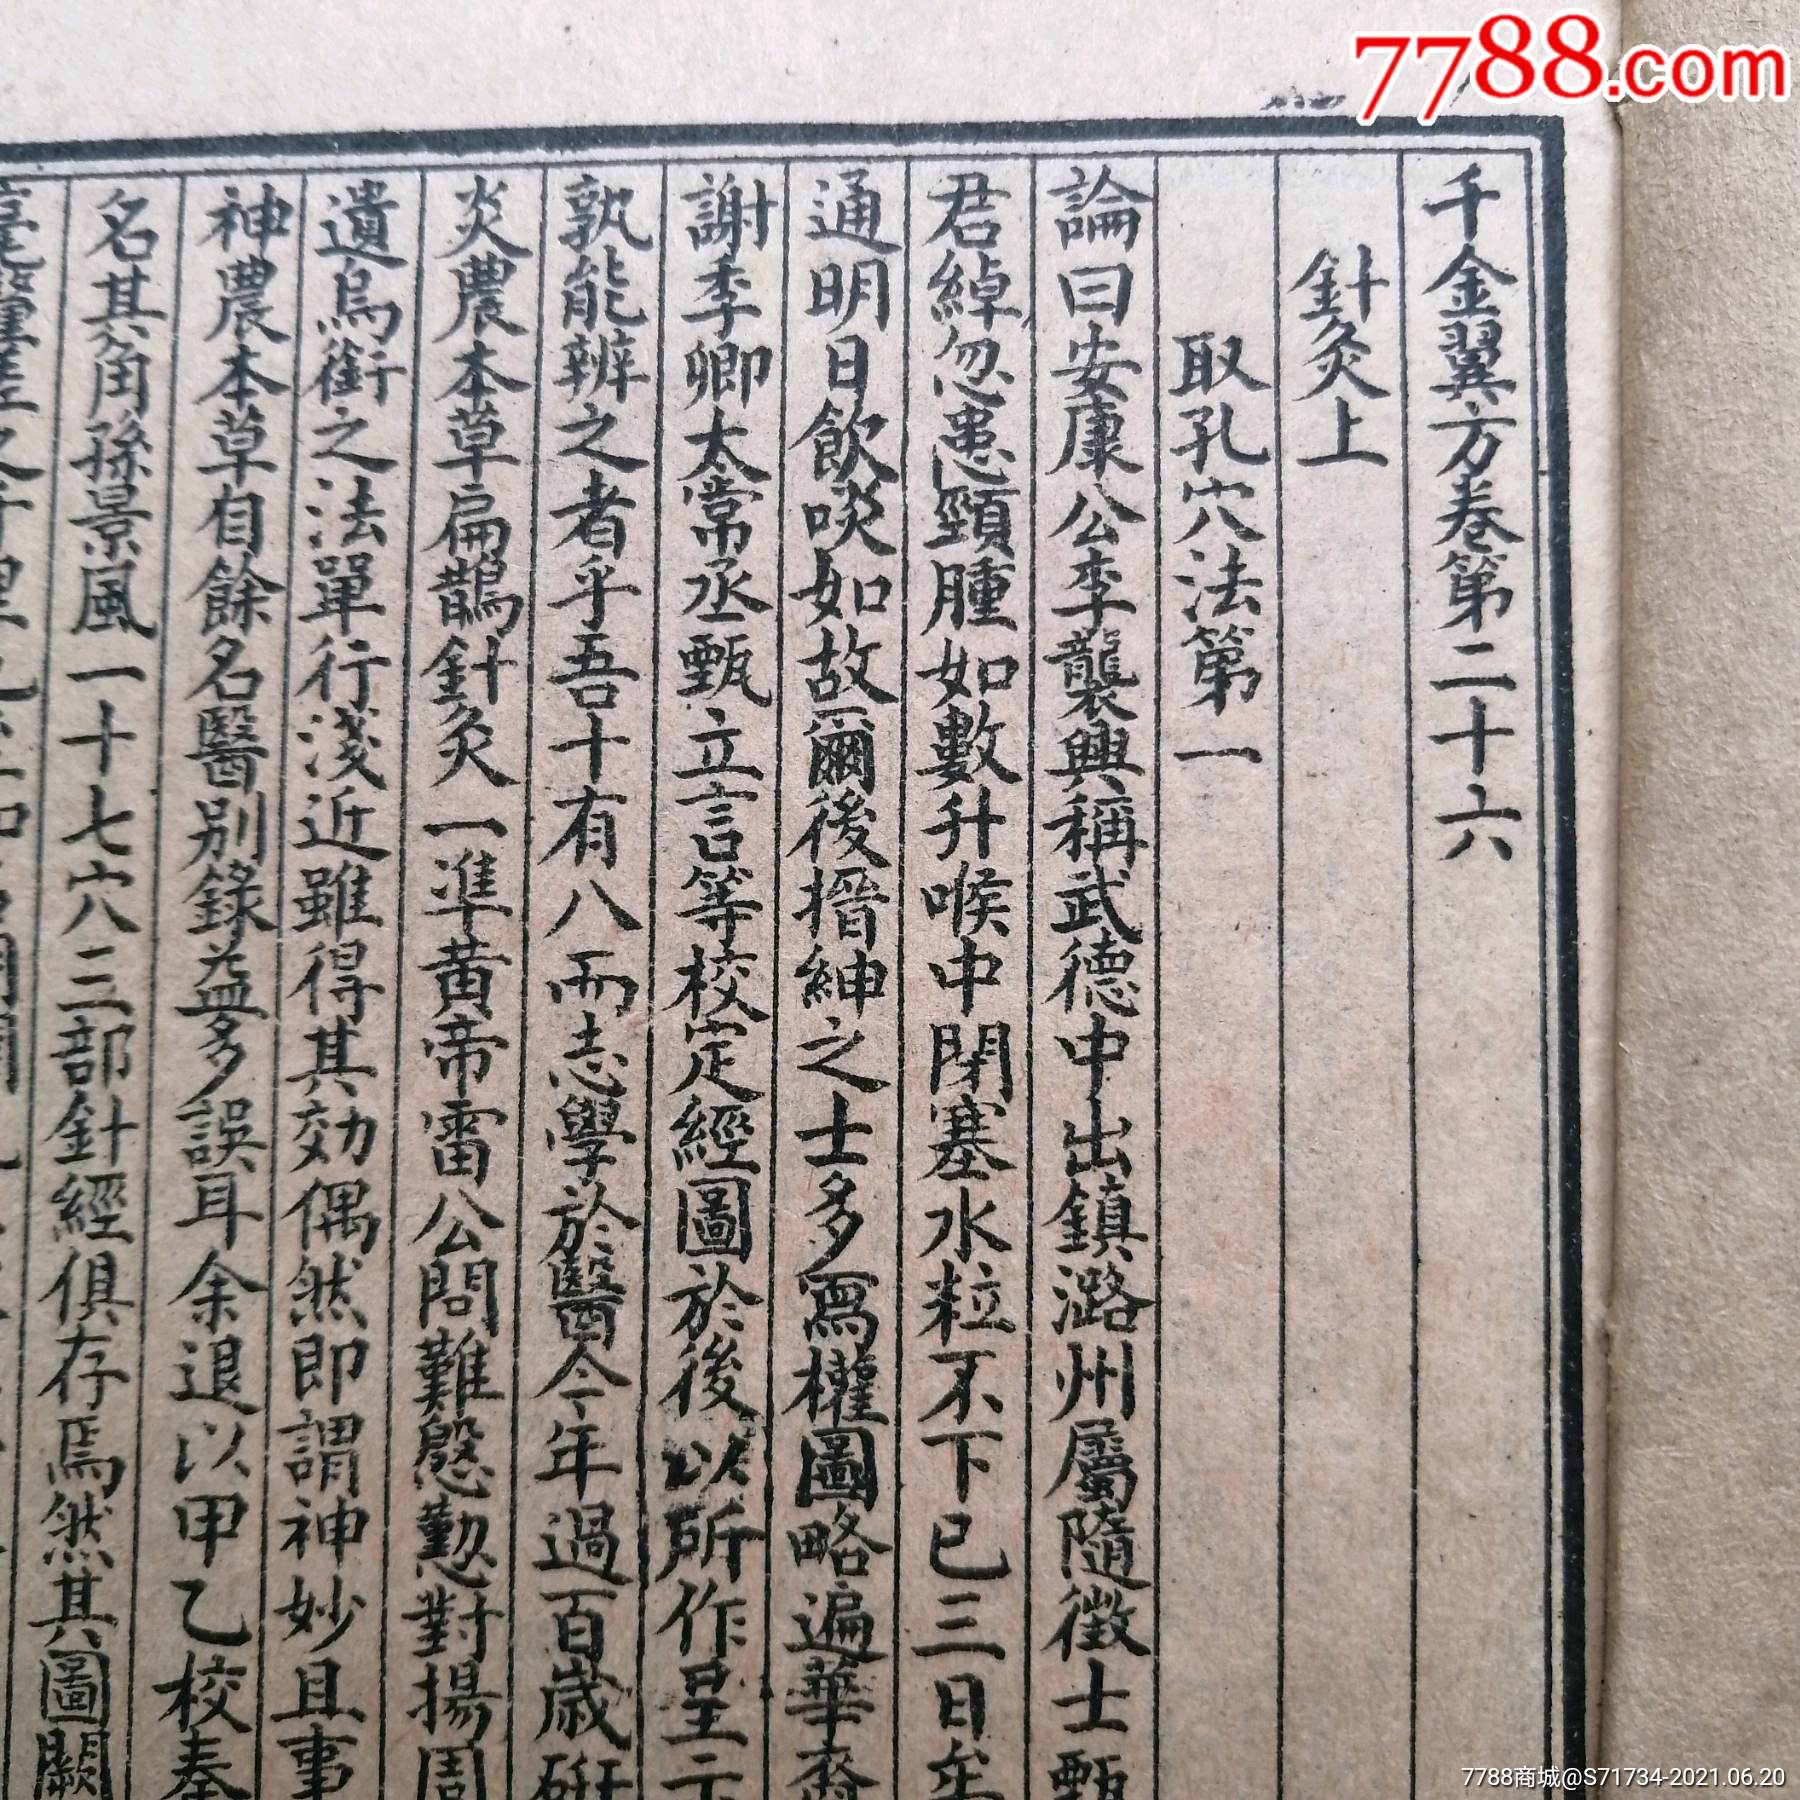 7788.com
千金翼方卷第二十六
針灸上
取孔穴法第一
論曰安康公李襲興稱武德中出鎮潞州屬隨徵士甄
君綽忽患頸腫如數升喉中閉塞水粒不下已三日矣
通明日飲啖如故爾後搢紳之士多寫權圖略遍華裔
謝季卿太常丞甄立言等校定經圖於後以所作呈示
孰能辨之者乎吾十有八而志學於醫今年過百歲研
炎農本草扁鵲針灸一準黃帝雷公問難慇懃對揚周
遺烏銜之法單行淺近雖得其効偶然即謂神妙且事
神農本草自餘名醫別錄益多誤耳余退以甲乙校秦
名其角孫景風一十七穴三部針經俱存焉然其圖闕
7788商城@S71734-2021.06.20